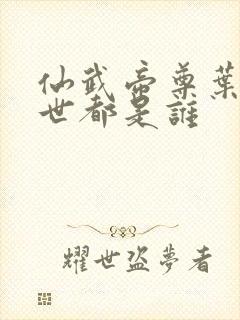 仙武帝尊葉
世都是誰
耀世盜夢者